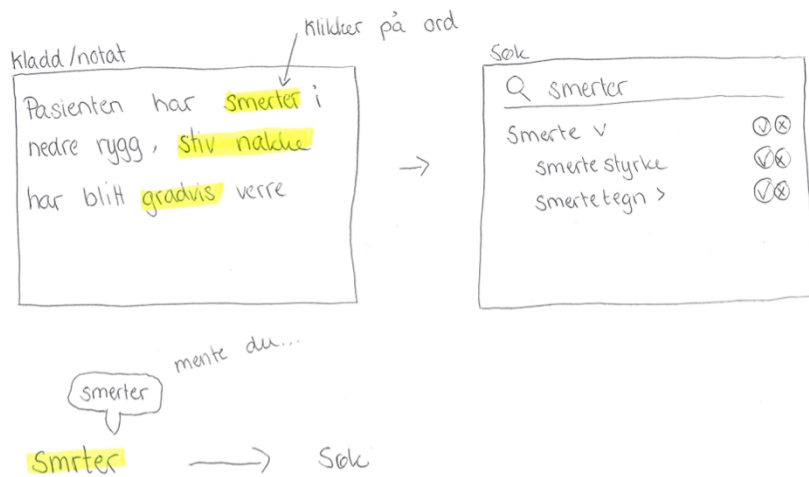 Klikker på ord
Kladd/notat
Pasienten har smerter i
nedre rygg, stiv nakke
har blitt gradvis verre
Søk
smerter
Smerte
smerte styrke
smerte tegn >
mente du...
smerter
Smrter
Søk